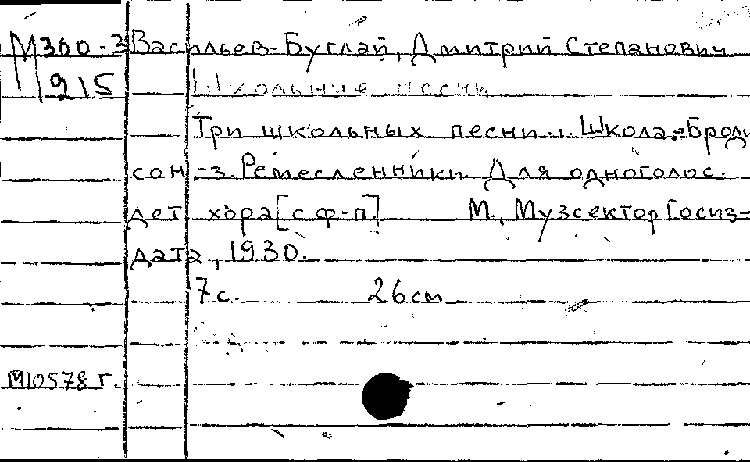 М360-3 Васильев-Буглай, Дмитрий Степанович
915 Школьные песни
Три школьных песни. 1. Школа.-
сон -3. Ремесленники Для одноголос.
дет. хора [с ф-п] М., Музсектор Госиз-
дата, 1930.
7с. 26см
М10578г.